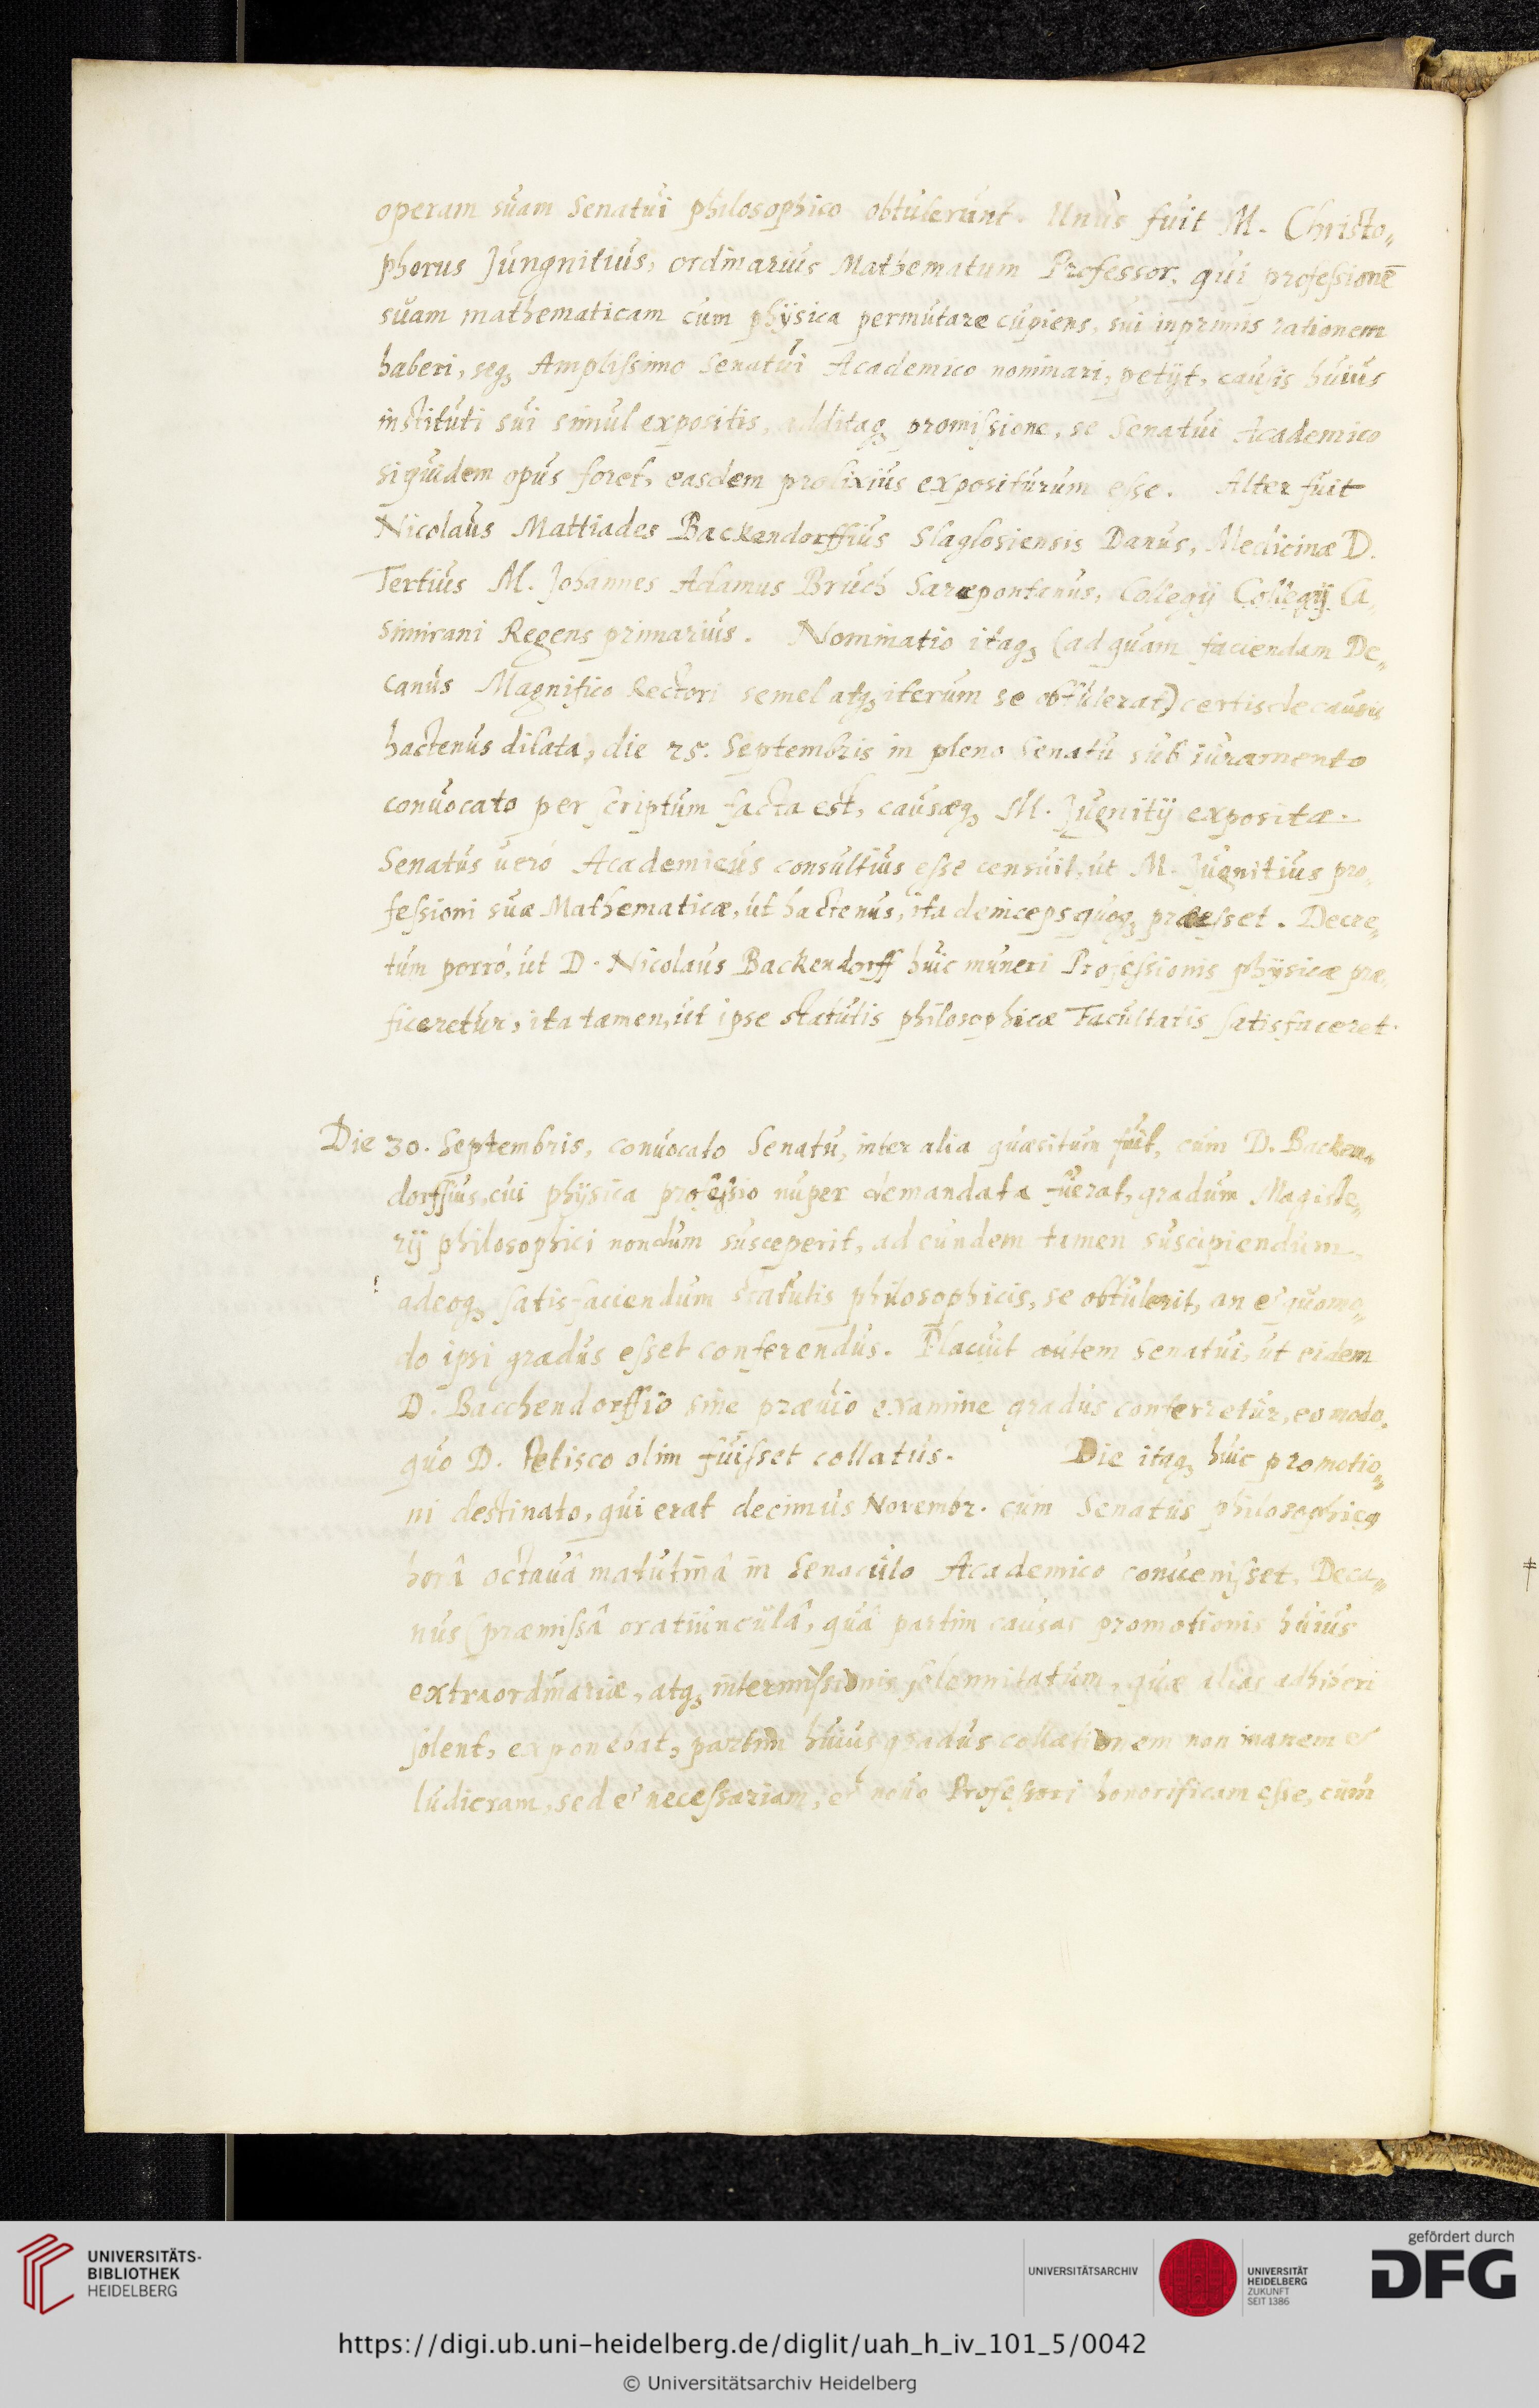 operam suam Senatui philosophico obtulerunt. Unus fuit M. Christo„
phorus Jungnitius, ordinarius Mathematum Professor, qui professionē
suam mathematicam cum physica permutare cupiens, sui inprimis rationem
haberi, seq₃ Amplissimo Senatui Academico nominari, petijt, causis huius
instituti sui simul expositis, additaq₃ promissione, se Senatui Academico
siquidem opus foret, easdem prolixius expositurum esse. Alter fuit
Nicolaus Mattiades Backendorffius Slaglosiensis Danus, Medicinæ D.
Tertius M. Johannes Adamus Bruch Saræpontanus, Collegij Collegij Ca„
simirani Regens primarius. Nominatio itaq₃ (ad quam faciendam De„
canus Magnifico Rectori semel atq₃ iterum se obtulerat) certis de causis
hactenus dilata, die 25. Septembris in pleno Senatu sub iuramento
convocato per scriptum facta est, causæq₃ M. Jugnitij expositæ.
Senatus verò Academicus consultius esse censuit, ut M. Jugnitius pro„
fessioni suæ Mathematicæ, ut hactenus, ita deinceps quoq₃ præesset. Decre„
tum porrò, ut D. Nicolaus Backendorff huic muneri Professionis physicæ præ„
ficeretur, ita tamen, ut ipse statutis philosophicæ Facultatis satisfaceret.
Die 30. Septembris, convocato Senatu, inter alia quæsitum fuit, cum D. Backen„
dorffius, cui physica professio nuper demandata fuerat, gradum Magiste„
rij philosophici nondum susceperit, ad eundem tamen suscipiendum
adeoq₃ satisfaciendum statutis philosophicis, se obtulerit, an et quomo„
do ipsi gradus esset conferendus. Placuit autem Senatui, ut eidem
D. Bacchendorffio sine prævio examine gradus conferretur, eo modo,
quo D. Petisco olim fuisset collatus. Die itaq₃ huic promotio„
ni destinato, qui erat decimus Novembr. cum Senatus philosophicus
horâ octavâ matutinâ in Senaculo Academico convenisset, Deca„
nus (præmissâ oratiunculâ, quâ partim causas promotionis huius
extraordinariæ, atq₃ intermissionis solennitatum, quæ alias adhiberi
solent, exponebat, partim huius gradus collationem non inanem et
ludicram, sed et necessariam, et novo Professori honorificam esse, cùm
UNIVERSITÄTS-
BIBLIOTHEK
HEIDELBERG
UNIVERSITÄTSARCHIV
UNIVERSITÄT
HEIDELBERG
ZUKUNFT
SEIT 1386
gefördert durch
DFG
https://digi.ub.uni-heidelberg.de/diglit/uah_h_iv_101_5/0042
© Universitätsarchiv Heidelberg